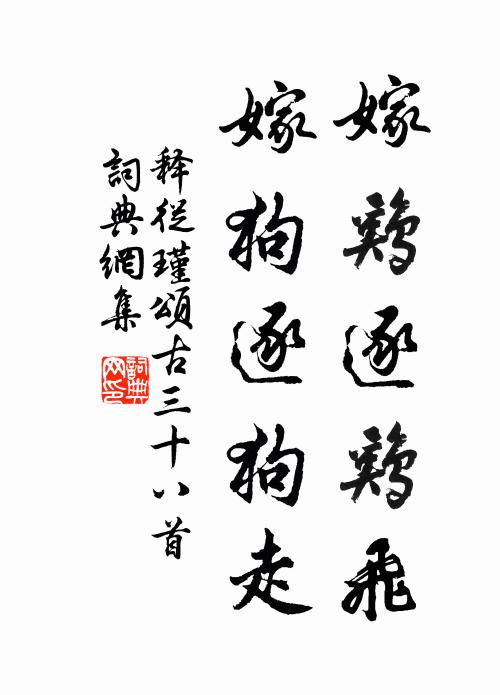 嫁鷄逐鷄飛
嫁狗逐狗走
释從瑾頌古三十八首
詞典網集
詞典網印